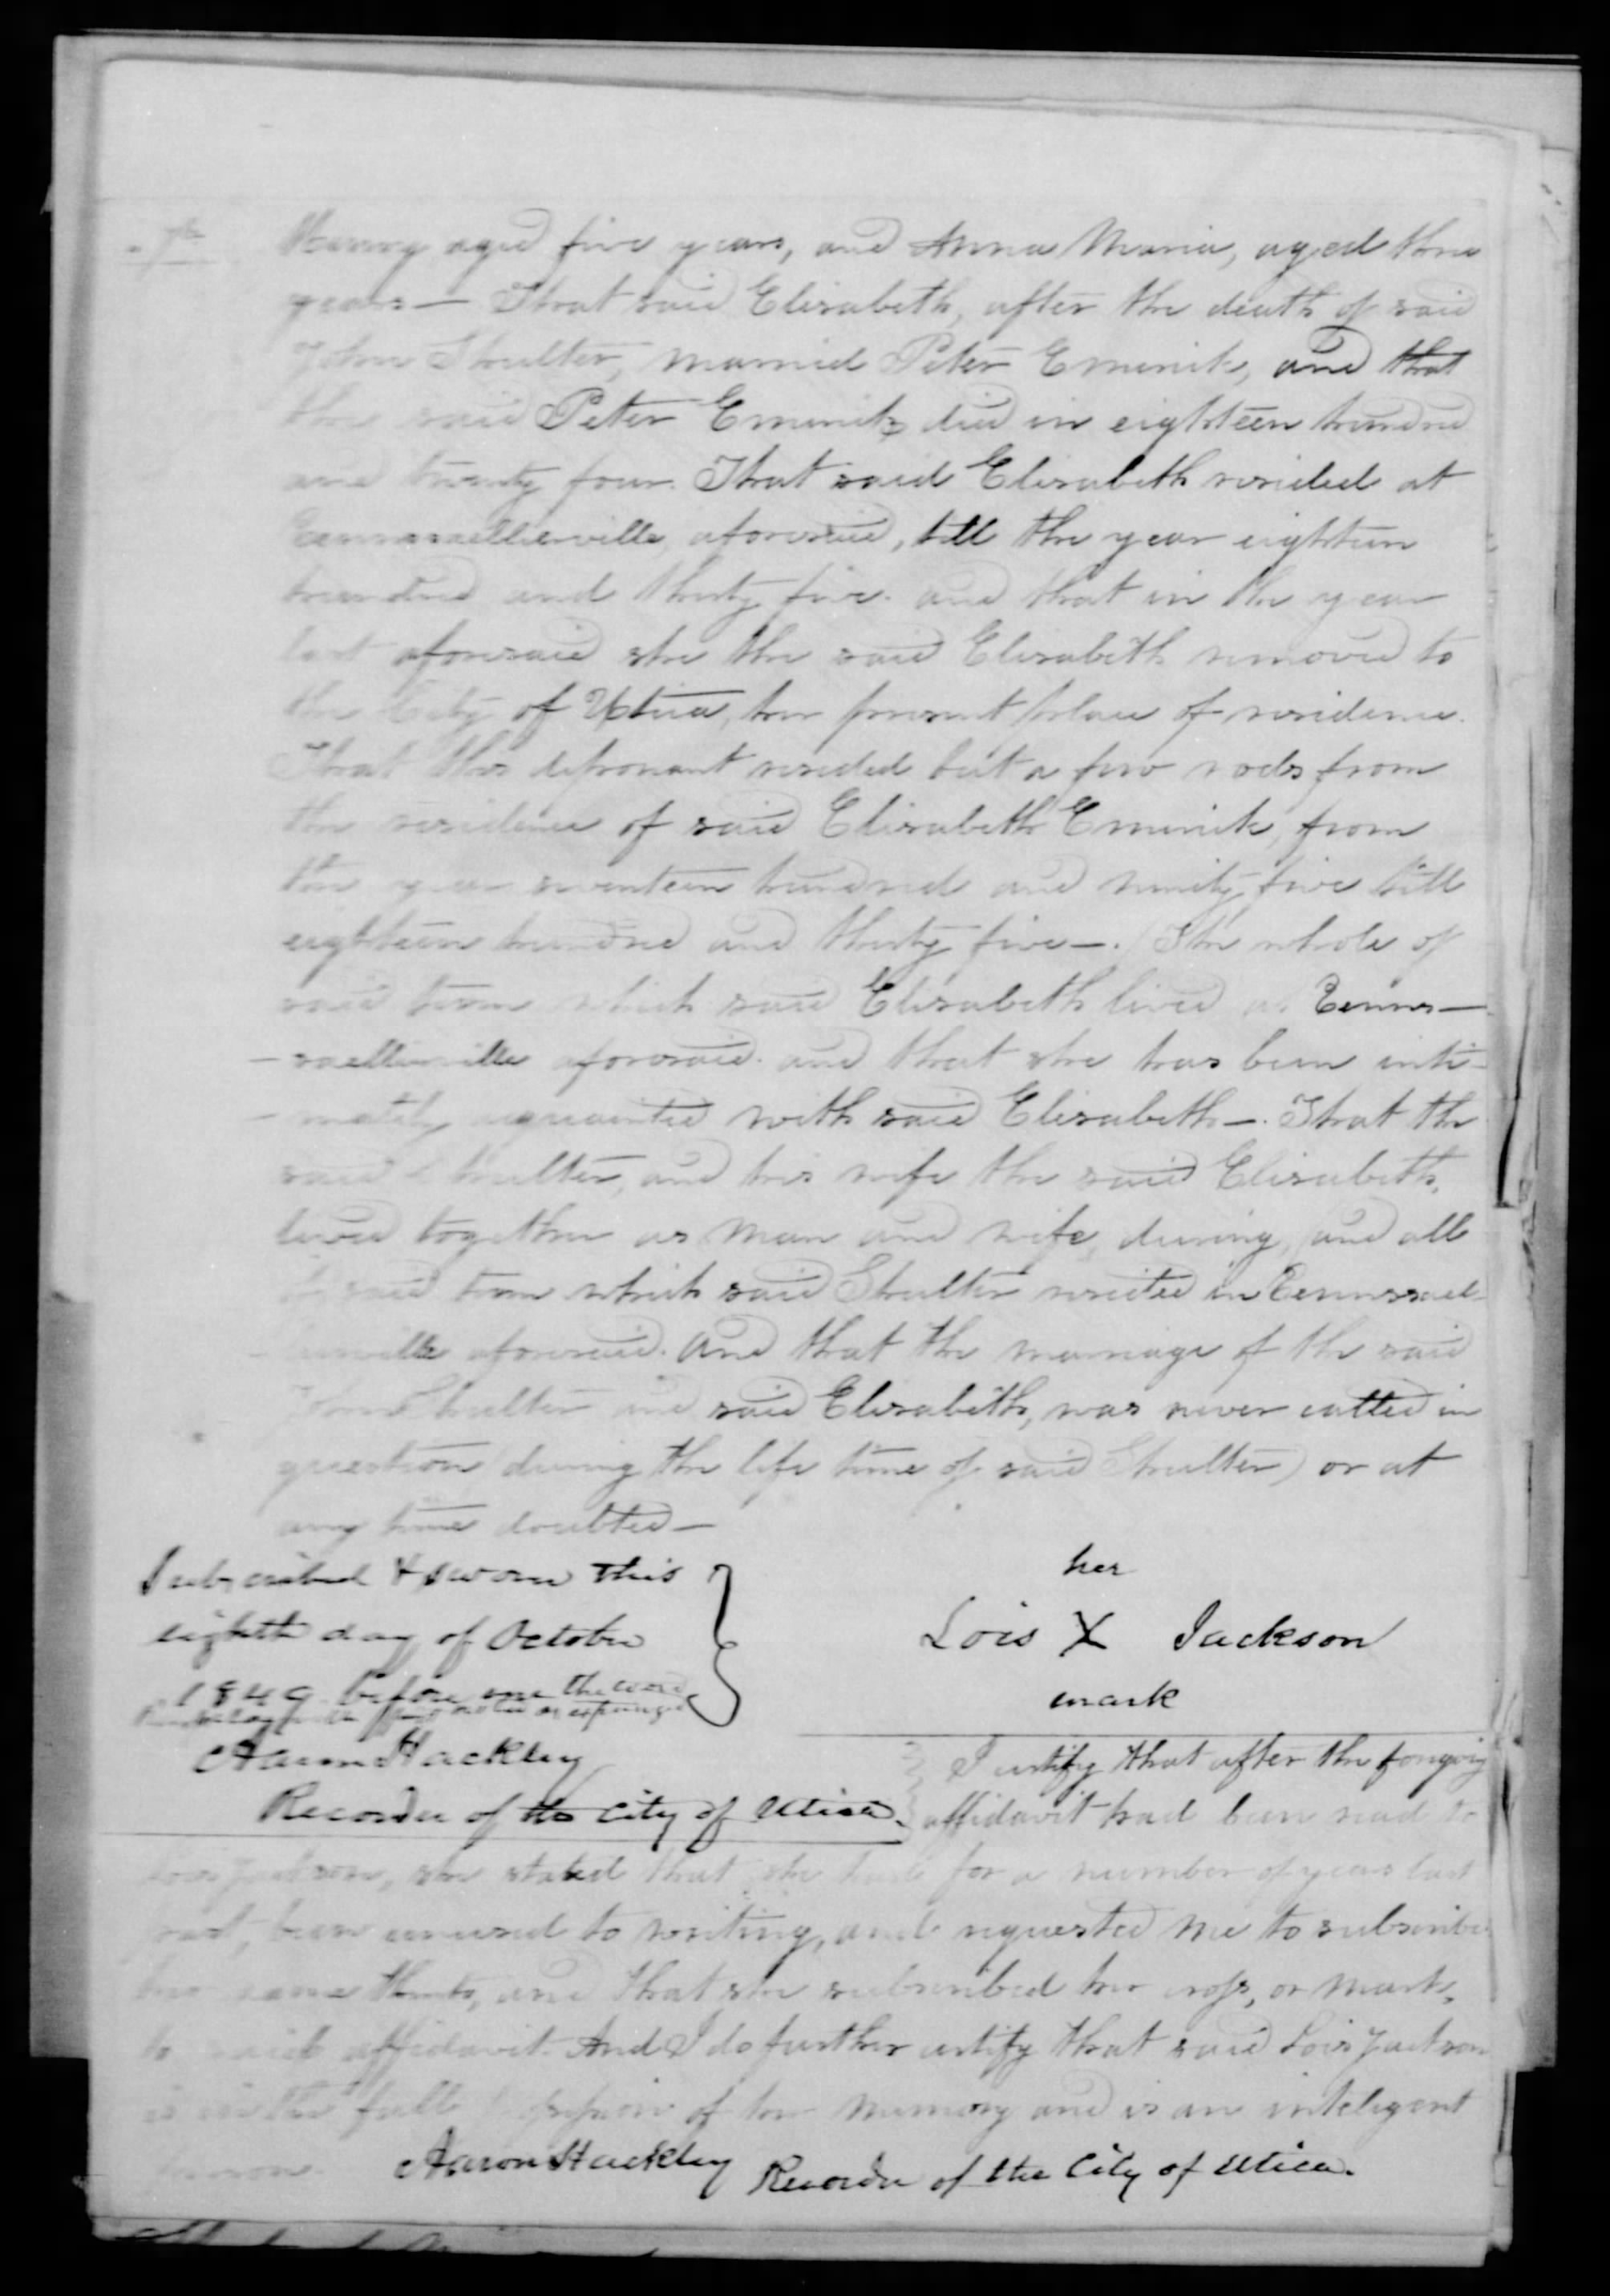 Henry aged five years, and Anna Maria, aged three
years — That said Elisabeth, after the death of said
John Shulter, married Peter Emerick, and that
the said Peter Emerick died in eighteen hundred
and twenty four. That said Elisabeth resided at
Rennsaellierville, aforesaid, till the year eighteen
hundred and thirty five. and that in the year
last aforesaid she the said Elisabeth removed to
the City of Utica, her present place of residence.
That this deponant resided but a few rods from
the residence of said Elisabeth Emerick, from
the year seventeen hundred and ninety five till
eighteen hundred and thirty five —. The whole of
said time which said Elisabeth lived at Renns —
— saellierville aforesaid. and that she has been inti-
- mately acquainted with said Elisabeth —. That the
said Shulter, and his wife the said Elisabeth,
lived together as man and wife, during, and all
said time which said Shulter resided in Rennssael-
- lierville aforesaid. And that the marriage of the said
John Shulter and said Elisabeth, was never called in
question (during the life time of said Shulter) or at
any time doubted —
Subscribed & sworn this
eighth day of October
1849 before me the word
Aaron Hackley
Recorder of the City of Utica.
her
Lois X Jackson
mark
I certify that after the foregoing
affidavit had been read to
Lois Jackson, she stated that she had for a number of years last
past, been unused to writing, and requested me to subscribe
her name thereto, and that she subscribed her cross, or mark,
to said affidavit. And I do further certify that said Lois Jackson
is in the full possession of her memory and is an inteligent
person. Aaron Hackley Recorder of the City of Utica.